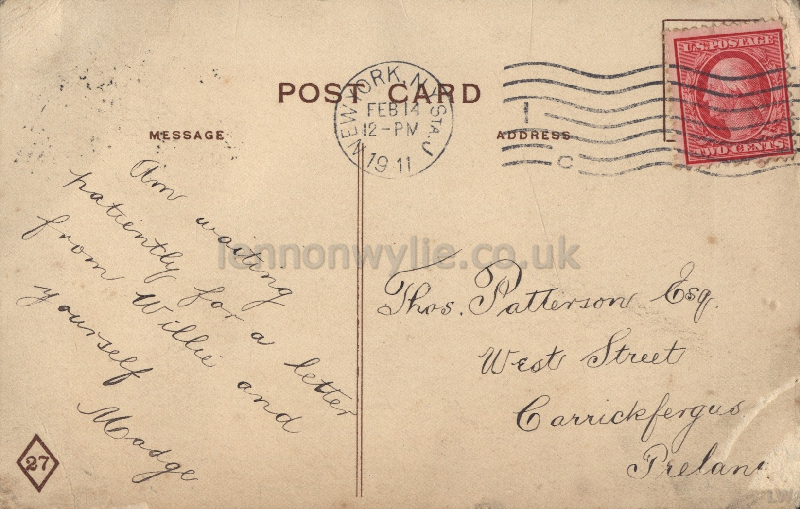 POST CARD
NEW YORK, N.Y. STA. J
FEB 14
12-PM
1911
1
C
U.S. POSTAGE
TWO CENTS
MESSAGE
ADDRESS
Am waiting
patiently for a letter
from Willie and
yourself
Madge
Thos. Patterson Esq.
West Street
Carrickfergus
Irelan
27
lennonwylie.co.uk